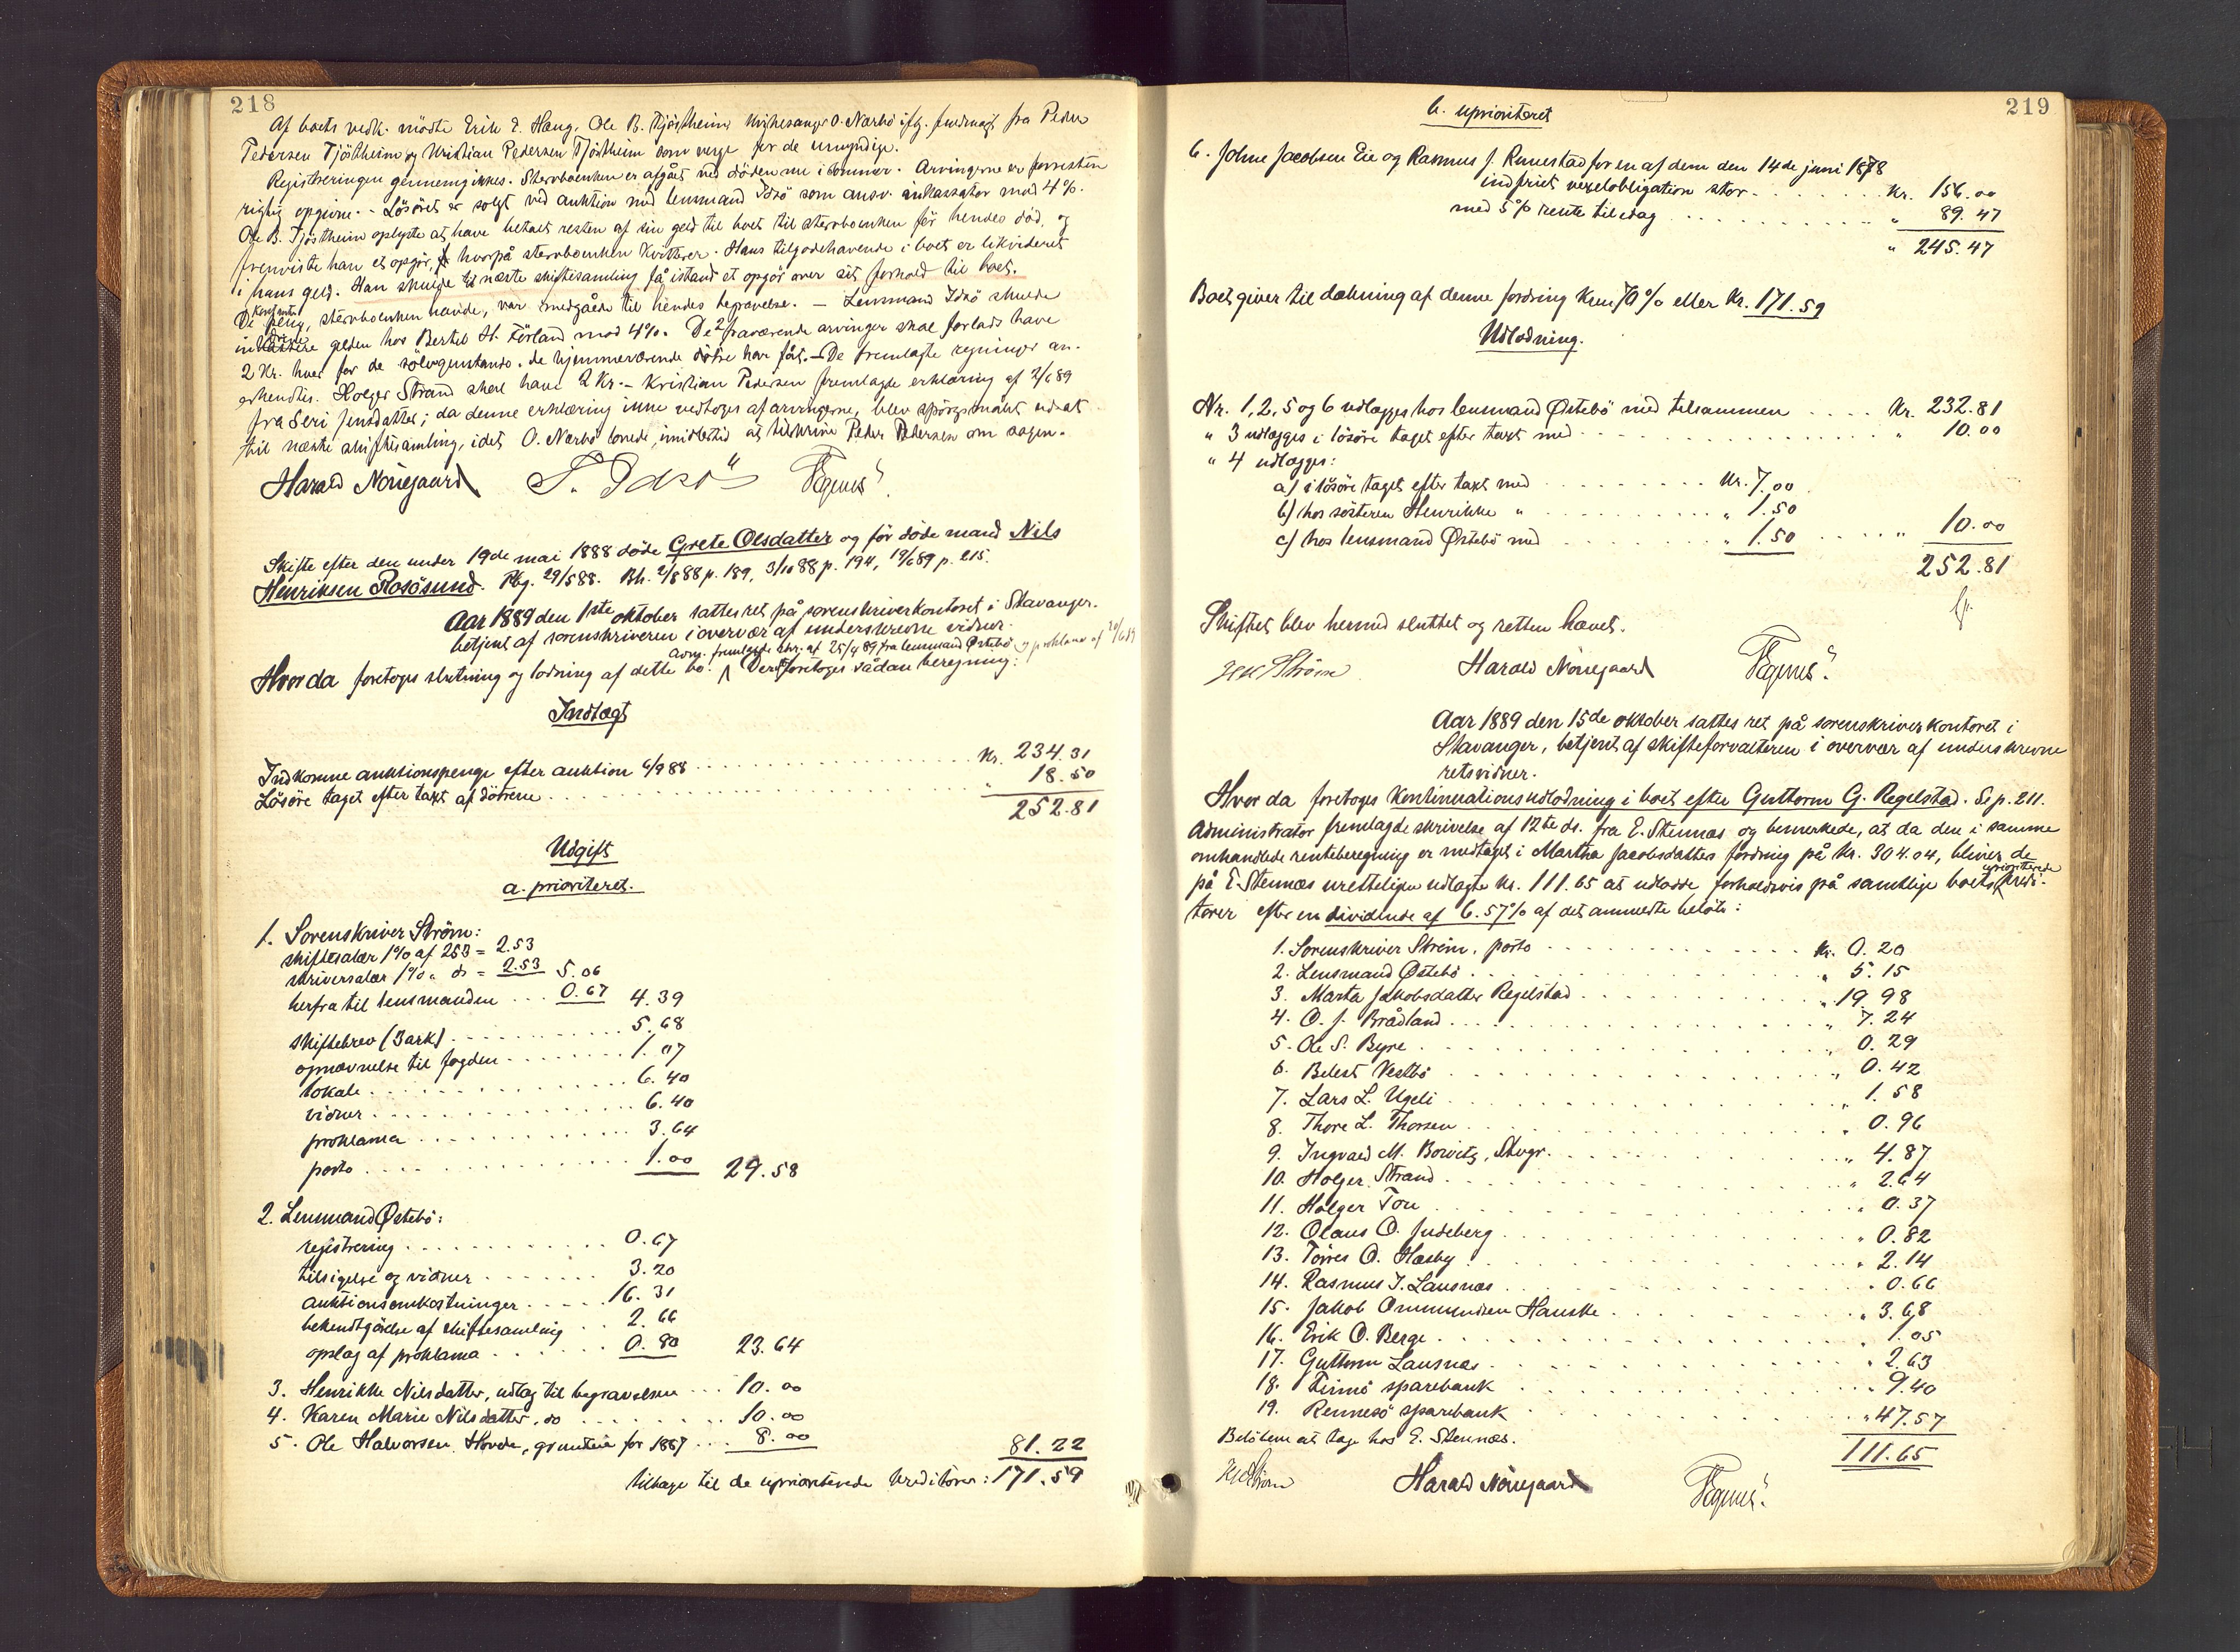 218
Af boets vedk. mödte Erik E. Haug, Ole B. Tjöstheim, kirkesanger O. Nærbö iflg. fuldmagt fra Peder
Pedersen Tjöstheim og Kristian Pedersen Tjöstheim som verge for de umyndige.
Registreringen gjennemgikkes. Stervboenken er afgået ved döden nu i sommer. Arvingerne er forresten
rigtig opgivne. - Lösöret er solgt ved auktion med lensmand Idsö som ansv. inkassator mod 4%.
Ole B. Tjöstheim oplyste at have betalt resten af sin gjeld til boet til stervboenken för hendes död, og
fremviste han et opgjör, hvorpå stervboenken kvitterer. Hans tilgodehavende i boet er likvideret
i hans gjeld. Han skulde til næste skiftesamling få istand et opgjör over sit forhold til boet.
De peng, stervboenken havde, var medgåede til hendes begravelse. - Lensmand Idsö skulde
gjelden hos Bertel H. Förland mod 4%. De 2 fraværende arvinger skal forlods have
2 Kr. hver for de sölvgjenstande, de hjemmeværende dötre har fåt. - De fremlagte regninger an-
erkjendtes. Holger Strand skal have 2 Kr. - Kristian Pedersen fremlagde erklæring af 2/6 89
fra Seri Jensdatter; da denne erklæring ikke vedtoges af arvingerne, blev spörgsmålet udsat
til næste skiftesamling, idet O. Nærbö lovede imidlertid at tilskrive Peder Pedersen om sagen.
Harald Nörregaard T. Idsö
Skifte efter den under 19de mai 1888 döde Grete Olsdatter og för döde mand Nils
Henriksen Rosösund. Rbg. 29/5 88. Bh. 2/8 88 p. 189, 3/10 88 p. 194, 19/6 89 p. 215.
Aar 1889 den 1ste oktober sattes ret på sorenskriverkontoret i Stavanger.
betjent af sorenskriveren i overvær af underskrevne vidner.
Adm. fremlagde skr. af 25/4 89 fra lensmand Østebö og proklama af 20/6 89
Hvor da foretoges slutning og lodning af dette bo. Der foretoges sådan beregning:
Indtægt
Indkomne auktionspenge efter auktion 6/9 88 . . . Kr. 234.31
Lösöre taget efter taxt af dötrene . . . " 18.50
252.81
Udgift
a. prioriteret.
1. Sorenskriver Ström:
skiftesalær 1% af 253 = 2.53
skriversalær 1% " do = 2.53 5.06
herfra til lensmanden . . . 0.67 4.39
skiftebrev (3 ark) . . . 5.68
opnævnelse til fogden . . . 1.07
lokale . . . 6.40
vidner . . . 6.40
proklama . . . 3.64
porto . . . 1.00 29.58
2. Lensmand Østebö:
registrering . . . 0.67
tilsigelse og vidner . . . 3.20
auktionsomkostninger . . . 16.31
bekjendtgörelse af skiftesamling . . 2.66
opslag af proklama . . . 0.80 23.64
3. Henrikke Nilsdatter, udlæg til begravelsen . . . 10.00
4. Karen Marie Nilsdatter, do . . . 10.00
5. Ole Halvorsen Hovda, grundleie for 1887 . . . 8.00 81.22
tilbage til de uprioriterede kreditorer: 171.59
219
b. uprioriteret
6. Johne Jacobsen Eie og Rasmus J. Runestad for en af dem den 14de juni 1878
indfriet vexelobligation stor . . . Kr. 156.00
med 5% rente til idag . . . " 89.47
" 245.47
Boet giver til dækning af denne fordring kun 70% eller Kr. 171.59
Udlodning.
Nr. 1, 2, 5 og 6 udlægges hos lensmand Østebö med tilsammen . . . . Kr. 232.81
" 3 udlægges i lösöre taget efter taxt med . . . " 10.00
" 4 udlægges:
a) i lösöre taget efter taxt med . . . Kr. 7.00
b) hos sösteren Henrikke " . . . " 1.50
c) hos lensmand Østebö med . . . " 1.50 . . . " 10.00
252.81
Skiftet blev hermed sluttet og retten hævet.
Harald Nörregaard
Aar 1889 den 15de oktober sattes ret på sorenskriverkontoret i
Stavanger, betjent af skifteforvalteren i overvær af underskrevne
retsvidner.
Hvor da foretoges kontinuationsudlodning i boet efter Guttorm G. Regelstad. Se p. 211.
Administrator fremlagde skrivelse af 12te ds. fra E. Stennæs og bemerkede, at da den i samme
omhandlede renteberegning er medtaget i Martha Jacobsdatters fordring på Kr. 304.04, bliver de
på E. Stennæs uretteligen udlagte Kr. 111.65 at udlodde forholdsvis på samtlige boets uprioriterede kredi-
torer efter en dividende af 6.57% af det anmeldte belöb:
1. Sorenskriver Ström, porto . . . Kr. 0.20
2. Lensmand Østebö . . . " 5.15
3. Marta Jakobsdatter Regelstad . . . " 19.98
4. O. J. Brådland . . . " 7.24
5. Ole S. Byre . . . " 0.29
6. Belest Vestbö . . . " 0.42
7. Lars L. Ugeli . . . " 1.58
8. Thore L. Thorsen . . . " 0.96
9. Ingvald M. Bowitz, Stvgr. . . . " 4.87
10. Holger Strand . . . " 2.64
11. Holger Tou . . . " 0.37
12. Olaus O. Judeberg . . . " 0.82
13. Törres O. Hæsby . . . " 2.14
14. Rasmus T. Lausnæs . . . " 0.66
15. Jakob Ommundsen Hauske . . . " 3.68
16. Erik O. Berge . . . " 1.05
17. Guttorm Lausnæs . . . " 2.63
18. Finnö sparebank . . . " 9.40
19. Rennesö sparebank . . . " 47.57
Belöbene at tage hos E. Stennæs.
111.65
Harald Nörregaard